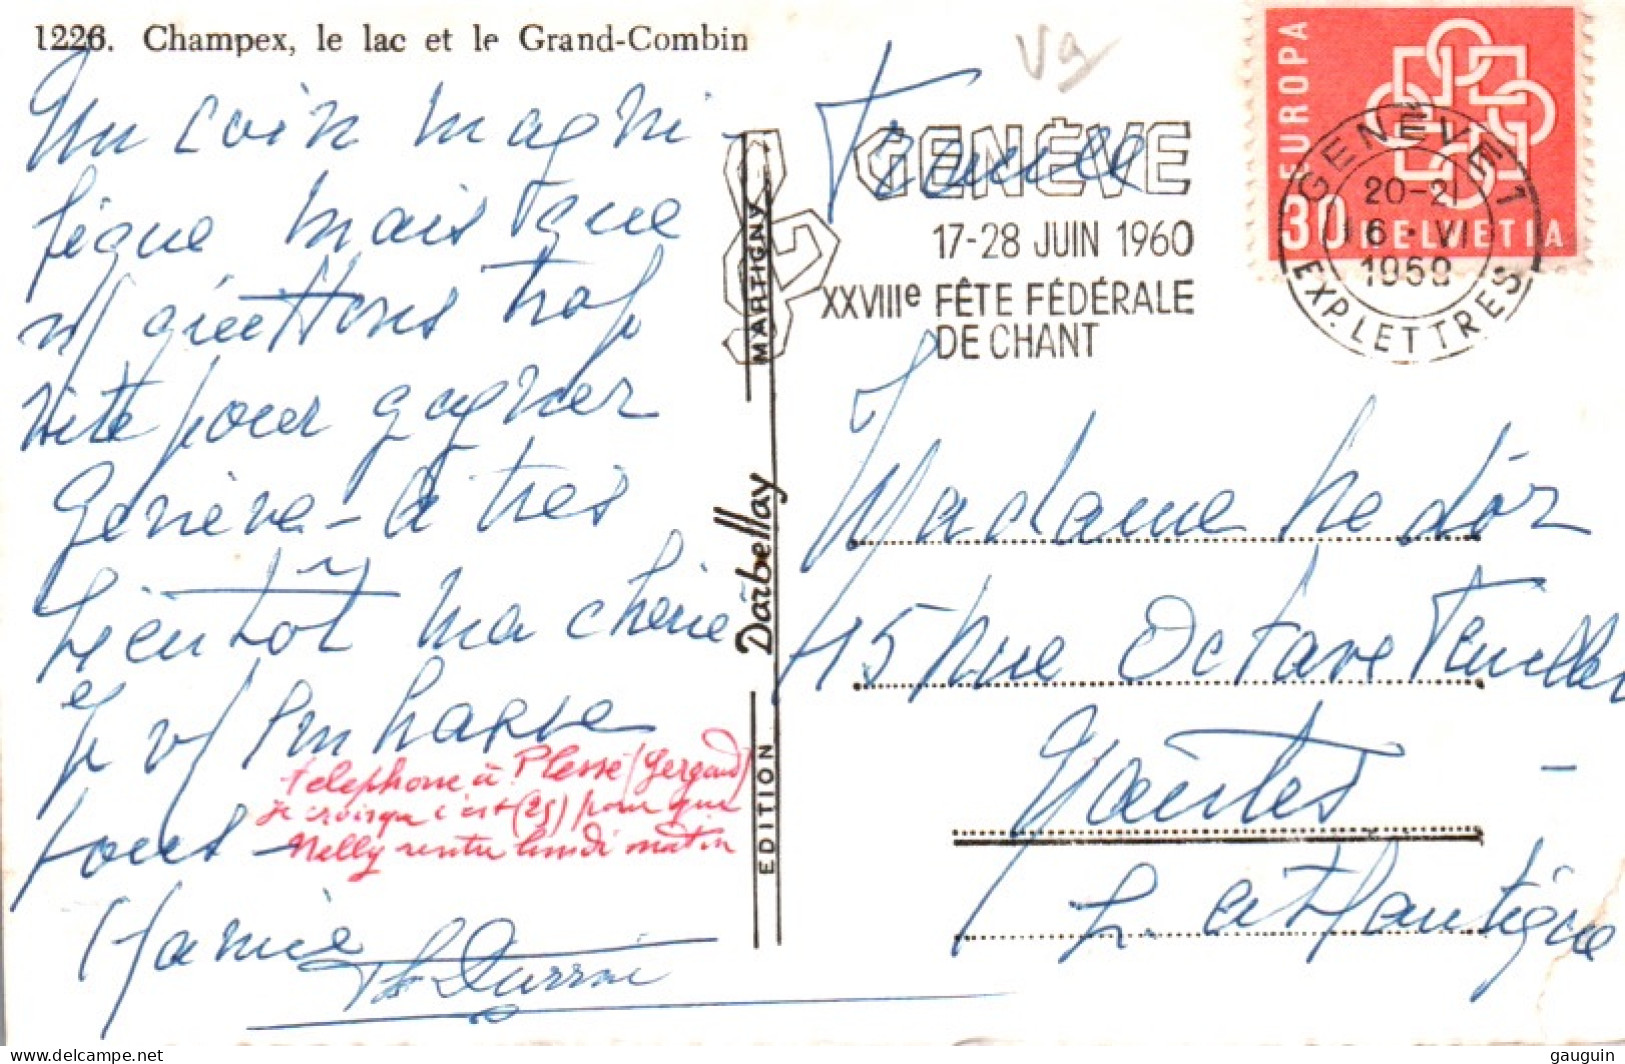 1226. Champex, le lac et le Grand-Combin
Un coin magni-
fique mais que
n/ quittons trop
vite pour gagner
Genève - à très
bientôt ma chérie
Je v/ embrasse
tous -
telephone à Plessé (Gergaud)
je crois que c'est (25) pour que
Nelly rentre lundi matin
Mamie
EDITION Darbellay MARTIGNY
Vg
France
GENÈVE
17-28 JUIN 1960
XXVIIIe FÊTE FÉDÉRALE
DE CHANT
EUROPA
30 HELVETIA
GENÈVE 1
20-21
VI
EXP. LETTRES
Madame
15 rue Octave Feuillet
Nantes -
L. Atlantique
gauguin
delcampe.net